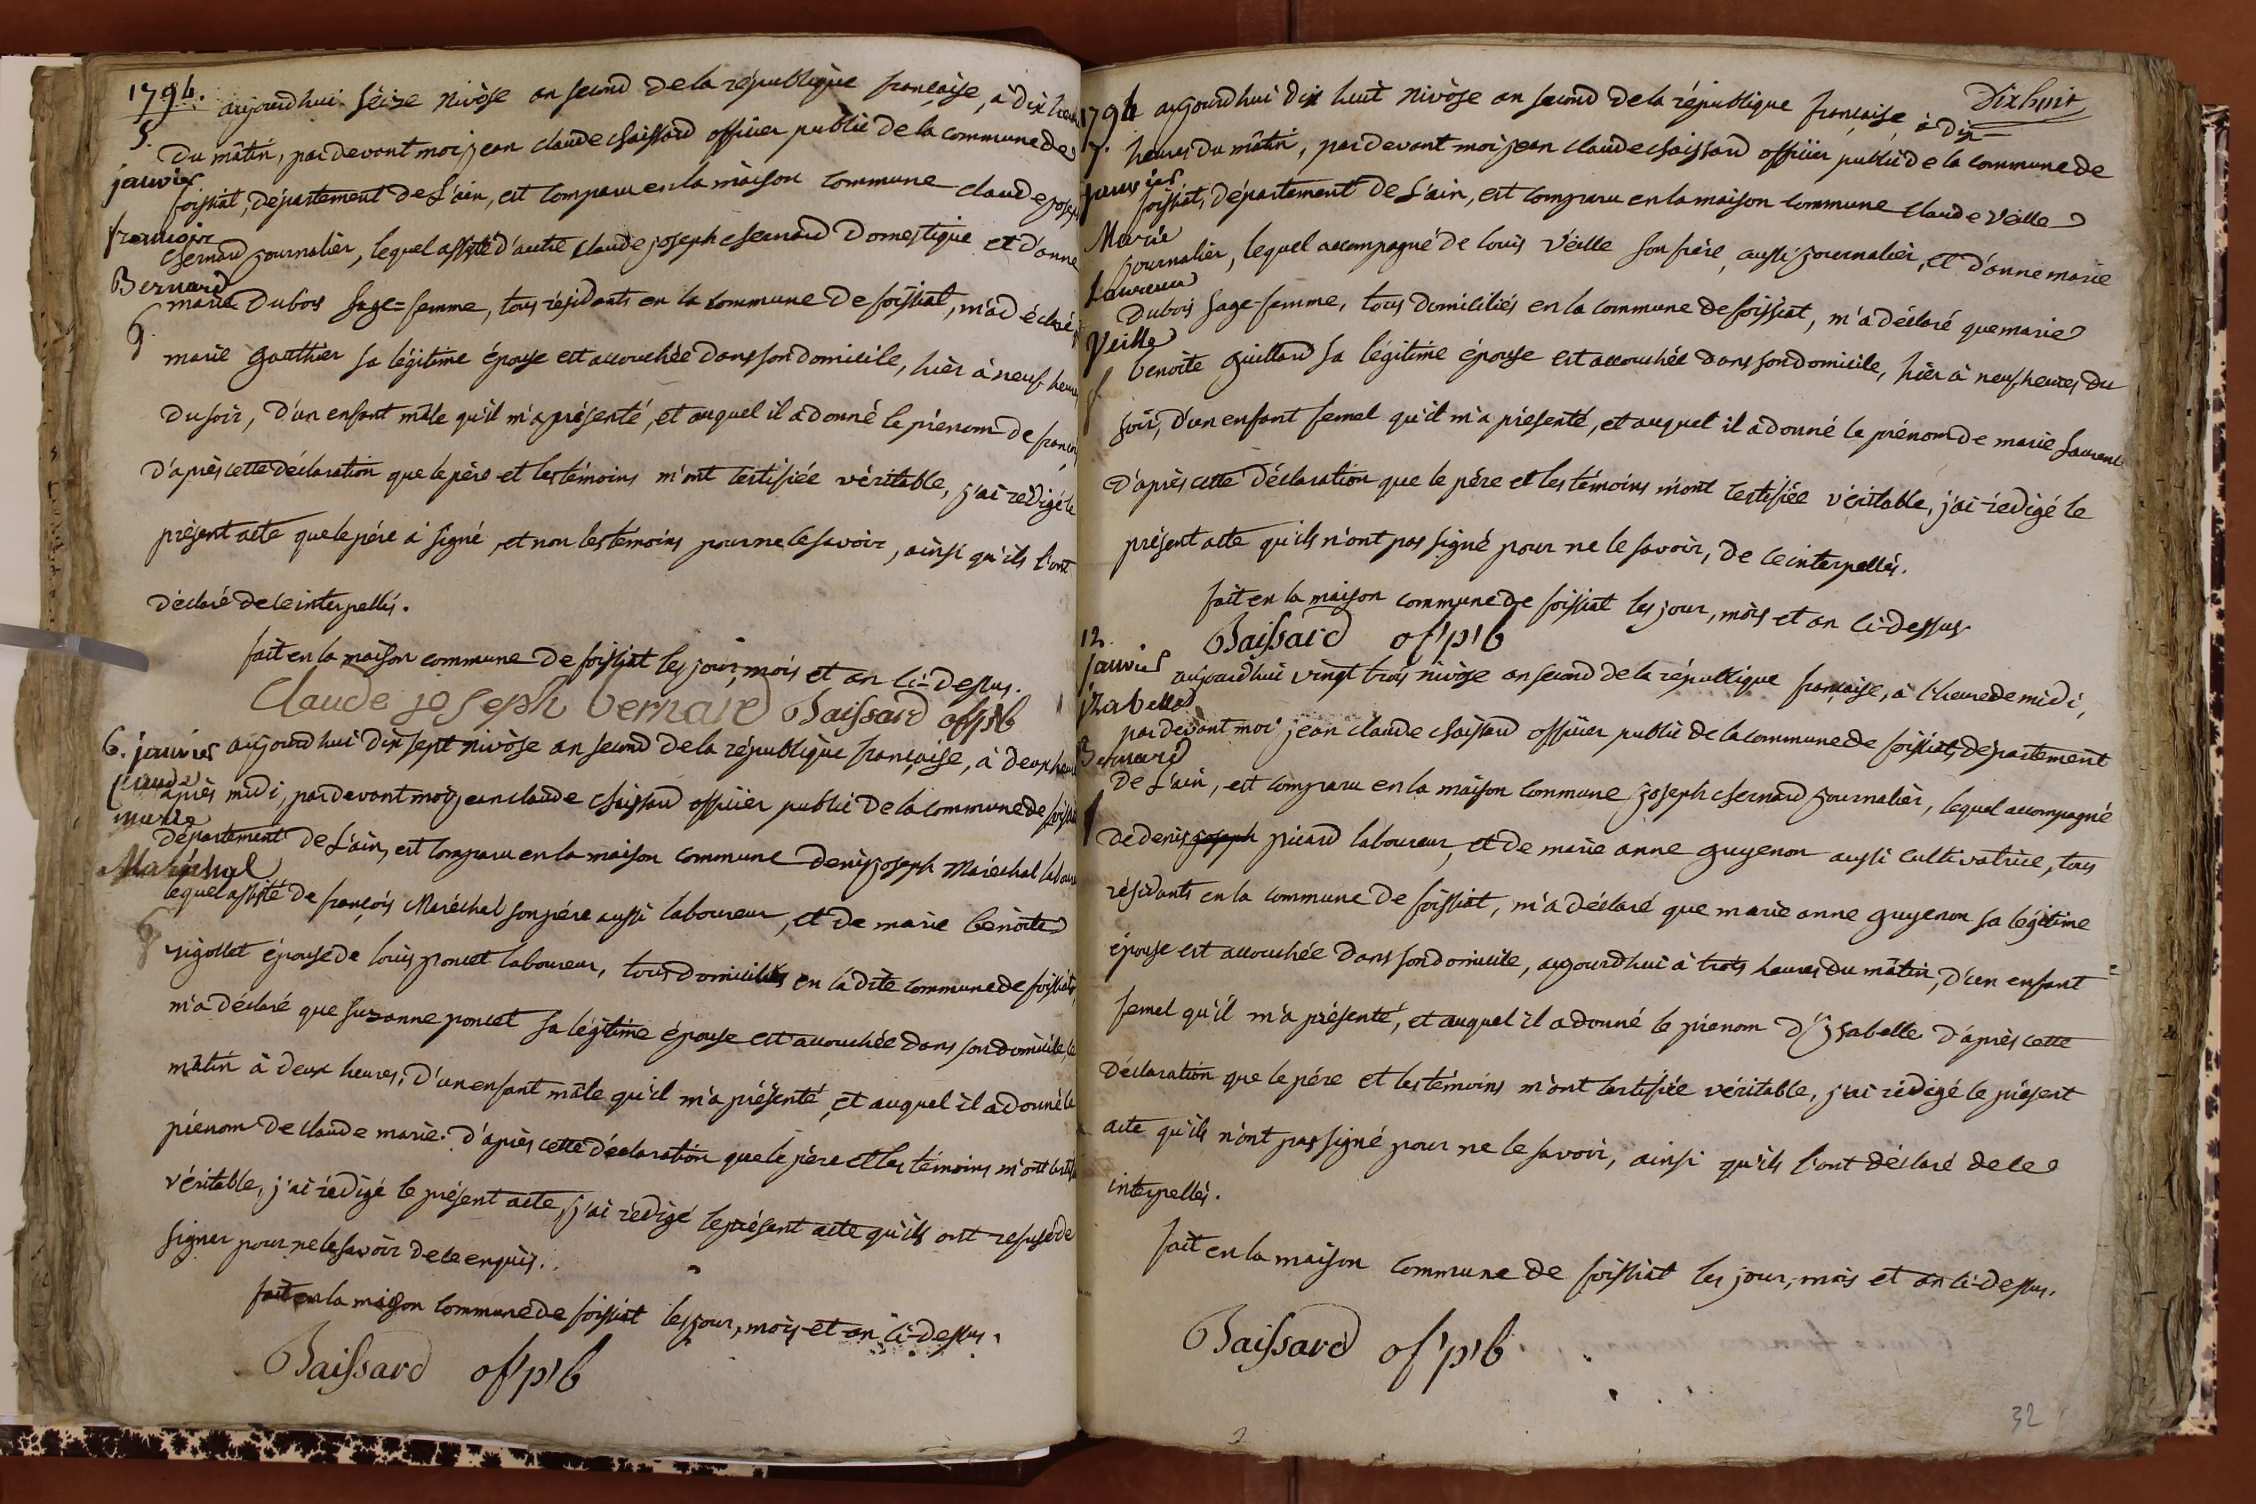 1794.
5.
janvier
françois
Bernard
G.
aujourd'hui seize nivôse an second de la république française, à dix heures
du mâtin, pardevant moi jean claude chaissard officier public de la commune de
foissiat, département de L'ain, est comparu en la maison commune claude joseph
Bernard journalier, lequel assisté d'autre claude joseph Bernard domestique et d'anne
marie Dubois sage=femme, tous résidants en la commune de foissiat, m'a déclaré q
marie gauthier sa légitime épouse est accouchée dans son domicile, hièr à neuf heures
du soir, d'un enfant mâle qu'il m'a présenté, et auquel il a donné le prénom de françois,
d'après cette déclaration que le père et les témoins m'ont certifiée véritable, j'ai rédigé le
présent acte que le père a signé, et non les témoins pour ne le savoir, ainsi qu'ils l'ont
déclaré de ce interpellés.
fait en la maison commune de foissiat les jour, mois et an ci-dessus.
Claude joseph bernard Baissard of'p'b
6. janvier
Claude
marie
Maréchal
G
aujourd'hui dix sept nivôse an second de la république française, à deux heures
après midi, pardevant moi jean claude chaissard officier public de la commune de foissiat
département de L'ain, est comparu en la maison commune denis joseph Maréchal laboureur
lequel assisté de françois Maréchal son père aussi laboureur, et de marie benoite
rigollet épouse de louis poncet laboureur, tous domiciliés en la dite commune de foissiat,
m'a déclaré que suzanne poncet sa légitime épouse est accouchée dans son domicile, ce
mâtin à deux heures, d'un enfant mâle qu'il m'a présenté, et auquel il a donné le
prénom de claude marie. d'après cette déclaration que le père et les témoins m'ont certifié
véritable, j'ai rédigé le présent acte, j'ai rédigé le présent acte qu'ils ont refusé de
signer pour ne le savoir de ce enquis.
fait en la maison commune de foissiat les jour, mois et an ci-dessus.
Baissard of'p'b
Dix huit
1794
7.
janvier
Marie
Laurence
Veille
f.
aujourd'hui dix huit nivôse an second de la république française à dix
heures du mâtin, pardevant moi jean claude chaissard officier public de la commune de
foissiat, département de L'ain, est comparu en la maison commune claude Veille
journalier, lequel accompagné de louis Veille son frère, aussi journalier, et d'anne marie
Dubois sage-femme, tous domiciliés en la commune de foissiat, m'a déclaré que marie
benoite guillard sa légitime épouse est accouchée dans son domicile, hièr à neuf heures du
soir, d'un enfant femel qu'il m'a présenté, et auquel il a donné le prénom de marie Laurence
d'après cette déclaration que le père et les témoins m'ont certifiée véritable, j'ai rédigé le
présent acte qu'ils n'ont pas signé pour ne le savoir, de ce interpellés.
fait en la maison commune de foissiat les jour, mois et an ci-dessus
Baissard of'p'b
12
janvier
izabelle
Bernard
f
aujourd'hui vingt trois nivôse an second de la république française, à l'heure de midi,
pardevant moi jean claude chaissard officier public de la commune de foissiat, département
de L'ain, est comparu en la maison commune joseph Bernard journalier, lequel accompagné
de denis joseph picard laboureur, et de marie anne guyenon aussi cultivatrice, tous
résidants en la commune de foissiat, m'a déclaré que marie anne guyenon sa légitime
épouse est accouchée dans son domicile, aujourd'hui à trois heures du mâtin, d'un enfant
femel qu'il m'a présenté, et auquel il a donné le prénom d'Ysabelle d'après cette
déclaration que le père et les témoins m'ont certifiée véritable, j'ai rédigé le présent
acte qu'ils n'ont pas signé pour ne le savoir, ainsi qu'ils l'ont déclaré de ce
interpellés.
fait en la maison commune de foissiat les jour, mois et an ci-dessus.
Baissard of'p'b
32